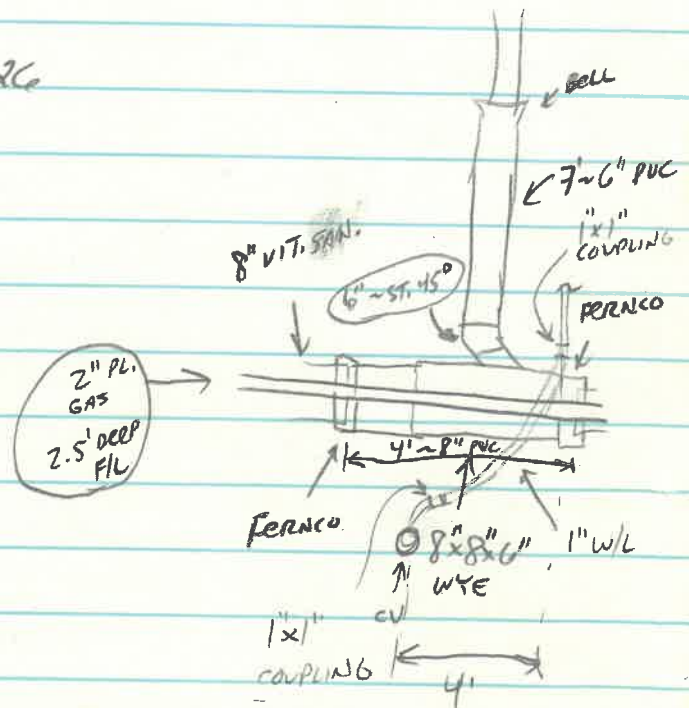 26
BELL
7'~6" PVC
1"x1"
COUPLING
FERNCO
8" VIT. SAN.
6"~ST. 45°
2" PL.
GAS
2.5' DEEP
F/L
4'~8" PVC
FERNCO
8"x8"x6"
WYE
1" W/L
CV
1"x1"
COUPLING
4'